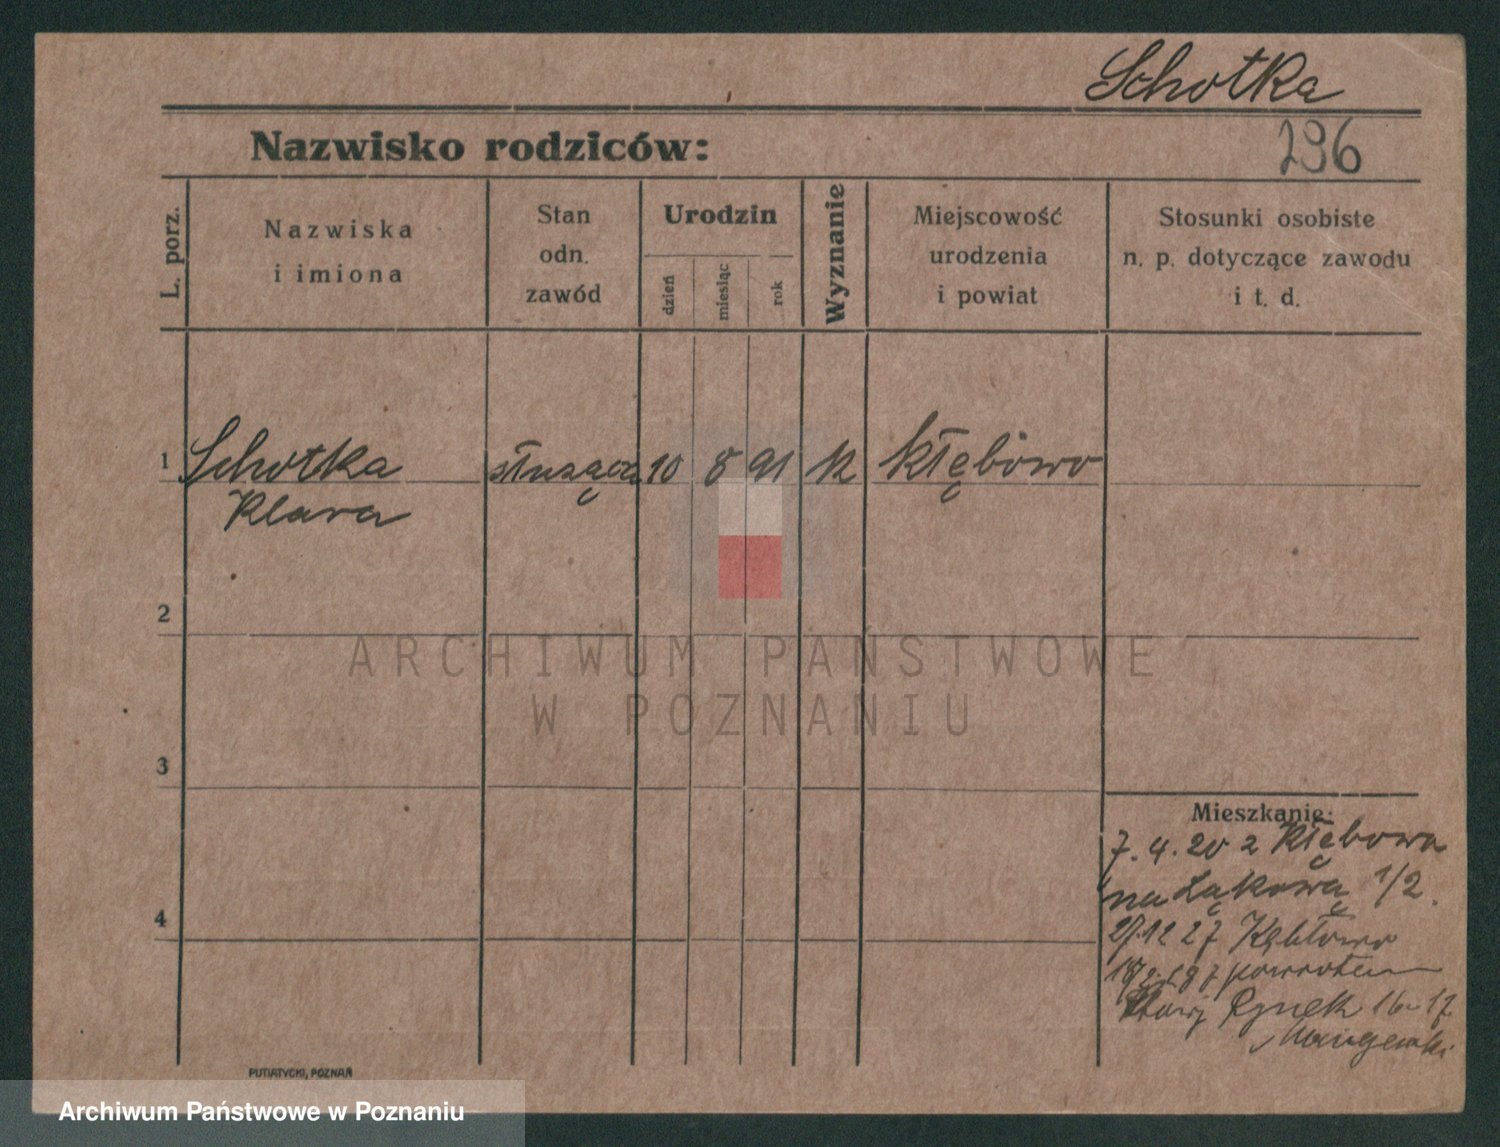 Schotka
296
Nazwisko rodziców:
L. porz.
Nazwiska
i imiona
Stan
odn.
zawód
Urodzin
dzień
miesiąc
rok
Wyznanie
Miejscowość
urodzenia
i powiat
Stosunki osobiste
n. p. dotyczące zawodu
i t. d.
1 Schotka służąca 10 8 91 k Kłębowo
Klara
2
ARCHIWUM PAŃSTWOWE
W POZNANIU
3
Mieszkanie:
7. 4. 20 z Kłębowa
na Łąkową 1/2.
4
27.12 27 Kębłowo
powrotem
Rynek 16-17
PUTIATYCKI, POZNAŃ
Archiwum Państwowe w Poznaniu